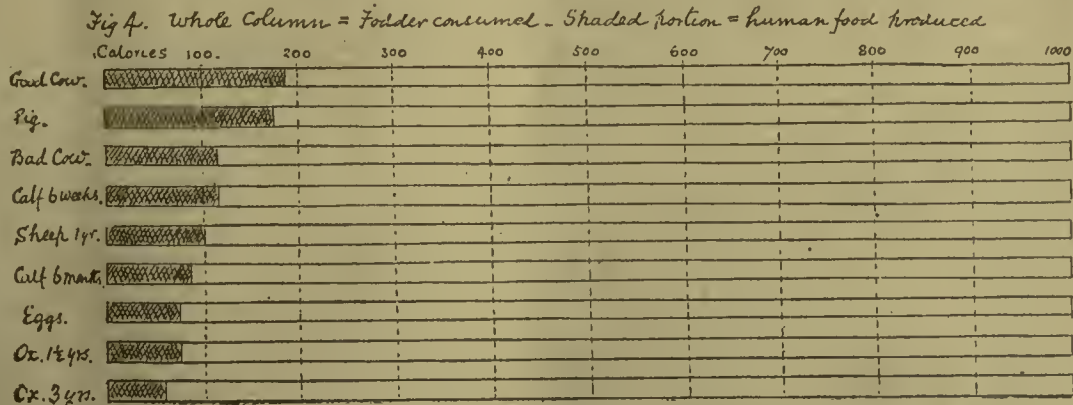 Fig 4. Whole Column = Fodder consumed - Shaded portion = human food produced
Calories 100. 200 300 400 500 600 700 800 900 1000
Good Cow.
Pig.
Bad Cow.
Calf 6 weeks.
Sheep 1 yr.
Calf 6 months.
Eggs.
Ox. 1½ yrs.
Ox. 3 yrs.